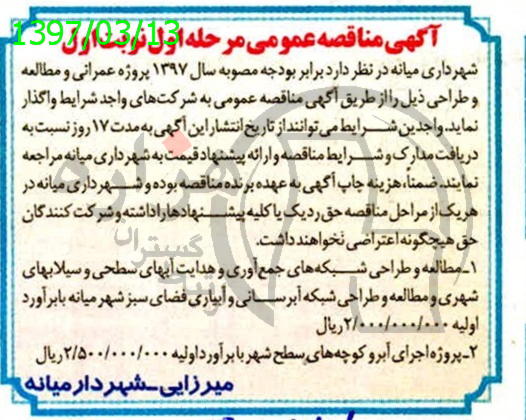 1397/03/13
آگهی مناقصه عمومی مرحله اول نوبت اول
شهرداری میانه در نظر دارد برابر بودجه مصوبه سال ۱۳۹۷ پروژه عمرانی و مطالعه
و طراحی ذیل را از طریق آگهی مناقصه عمومی به شرکت‌های واجد شرایط واگذار
نماید. واجدین شرایط می توانند از تاریخ انتشار این آگهی به مدت ۱۷ روز نسبت به
دریافت مدارک و شرایط مناقصه و ارائه پیشنهاد قیمت به شهرداری میانه مراجعه
نمایند. ضمناً، هزینه چاپ آگهی به عهده برنده مناقصه بوده و شهرداری میانه در
هریک از مراحل مناقصه حق رد یک یا کلیه پیشنهادها را داشته و شرکت کنندگان
حق هیچگونه اعتراضی نخواهند داشت.
۱ـ مطالعه و طراحی شبکه‌های جمع آوری و هدایت آبهای سطحی و سیلابهای
شهری و مطالعه و طراحی شبکه آبرسانی و آبیاری فضای سبز شهر میانه با برآورد
اولیه ۲/۰۰۰/۰۰۰/۰۰۰ریال
۲ـ پروژه اجرای آبرو کوچه‌های سطح شهر با برآورد اولیه ۲/۵۰۰/۰۰۰/۰۰۰ریال
میرزایی ـ شهردار میانه
هزاره
گسترال